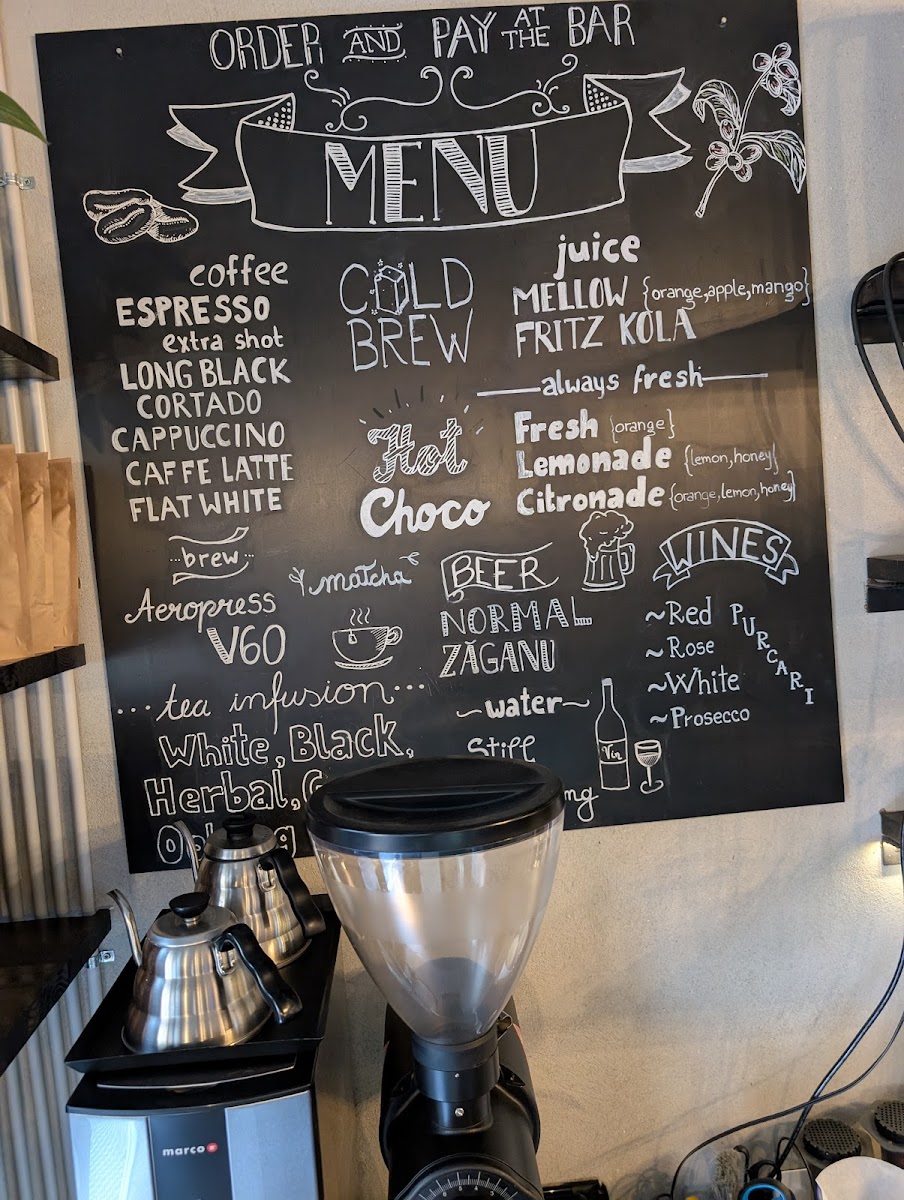 ORDER AND PAY AT THE BAR
MENU
coffee
ESPRESSO
extra shot
LONG BLACK
CORTADO
CAPPUCCINO
CAFFE LATTE
FLAT WHITE
brew
Aeropress
V60
COLD
BREW
Hot
Choco
matcha
juice
MELLOW {orange,apple,mango}
FRITZ KOLA
always fresh
Fresh {orange}
Lemonade {lemon,honey}
Citronade {orange,lemon,honey}
BEER
NORMAL
ZĂGANU
WINES
~Red
~Rose
~White
~Prosecco
PURCARI
~water~
Still
...tea infusion...
White, Black,
Herbal,
marco